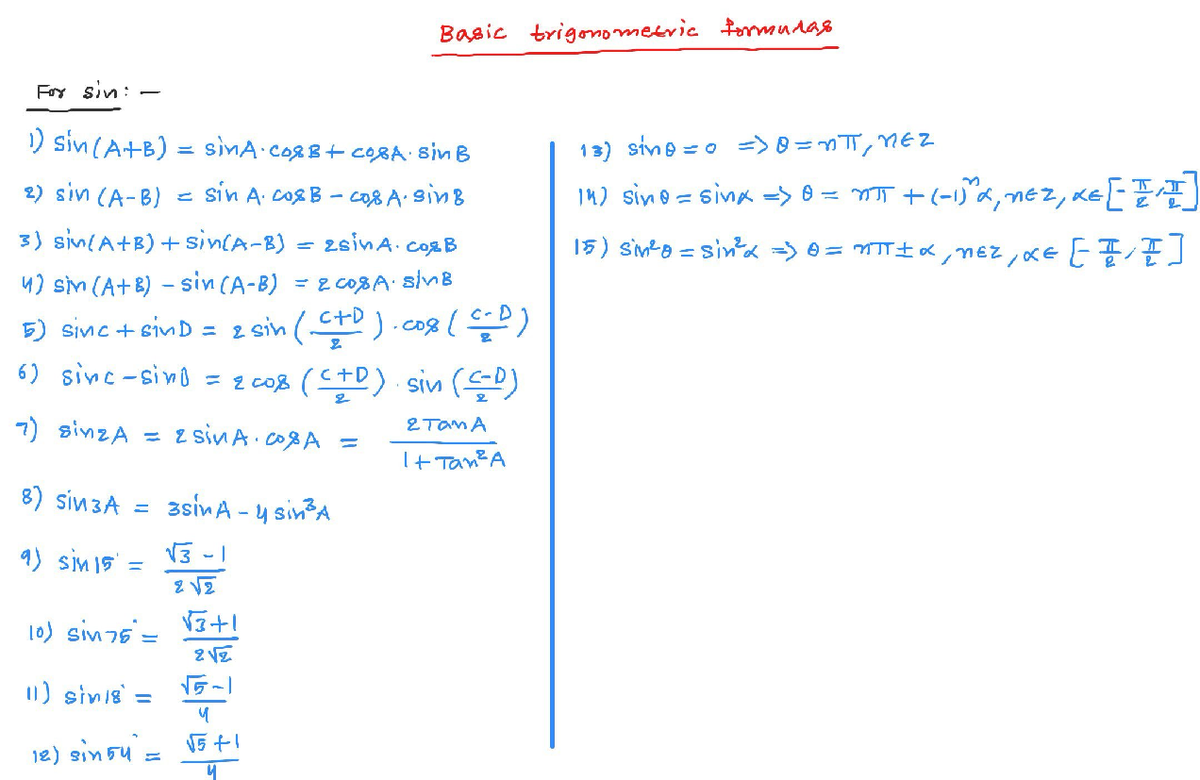 Basic trigonometric formulas
For sin: —
1) sin(A+B) = sinA·cosB + cosA·sinB
2) sin(A-B) = sinA·cosB - cosA·sinB
3) sin(A+B) + sin(A-B) = 2sinA·cosB
4) sin(A+B) - sin(A-B) = 2cosA·sinB
5) sinC + sinD = 2sin((C+D)/2)·cos((C-D)/2)
6) sinC - sinD = 2cos((C+D)/2)·sin((C-D)/2)
7) sin2A = 2sinA·cosA = 2TanA/(1+Tan²A)
8) sin3A = 3sinA - 4sin³A
9) sin15° = (√3-1)/(2√2)
10) sin75° = (√3+1)/(2√2)
11) sin18° = (√5-1)/4
12) sin54° = (√5+1)/4
13) sinθ = 0 => θ = nπ, n∈Z
14) sinθ = sinα => θ = nπ + (-1)ⁿα, n∈Z, α∈[-π/2, π/2]
15) sin²θ = sin²α => θ = nπ ± α, n∈Z, α∈[-π/2, π/2]